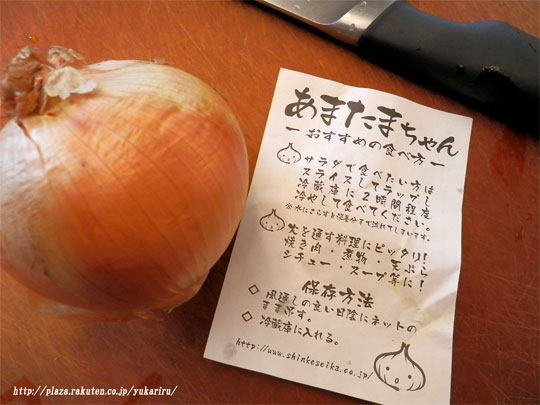 あまたまちゃん
ー おすすめの食べ方 ー
サラダで食べたい方は
スライスしてラップし
冷蔵庫に2時間程度
冷やして食べてください。
※水にさらすと栄養分まで流れてしまいます。
火を通す料理にピッタリ!
焼き肉・煮物・天ぷら
シチュー・スープ等に!
保存方法
◇ 風通しの良い日陰にネットの
まま吊す。
◇ 冷蔵庫に入れる。
http://www.shinkoseika.co.jp/
http://plaza.rakuten.co.jp/yukariru/